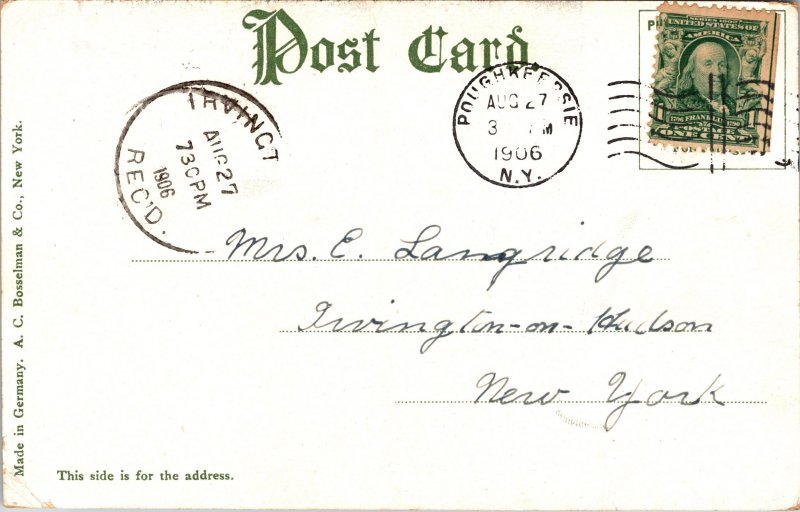 Post Card
POUGHKEEPSIE
AUG 27
3 M
1906
N.Y.
IRVINGT
AUG 27
730PM
1906
REC'D.
SERIES 1902
UNITED STATES OF
AMERICA
1706 FRANKLIN 1790
POSTAGE
ONE CENT
Mrs. E. Langridge
Irvington-on-Hudson
New York
This side is for the address.
Made in Germany. A. C. Bosselman & Co., New York.